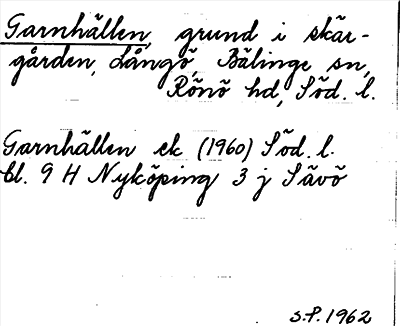 Garnhällen, grund i skär-
gården, Långö, Bälinge sn,
Rönö hd, Söd. l.
Garnhällen ek (1960) Söd. l.
bl. 9 H Nyköping 3 j Sävö
S.P. 1962